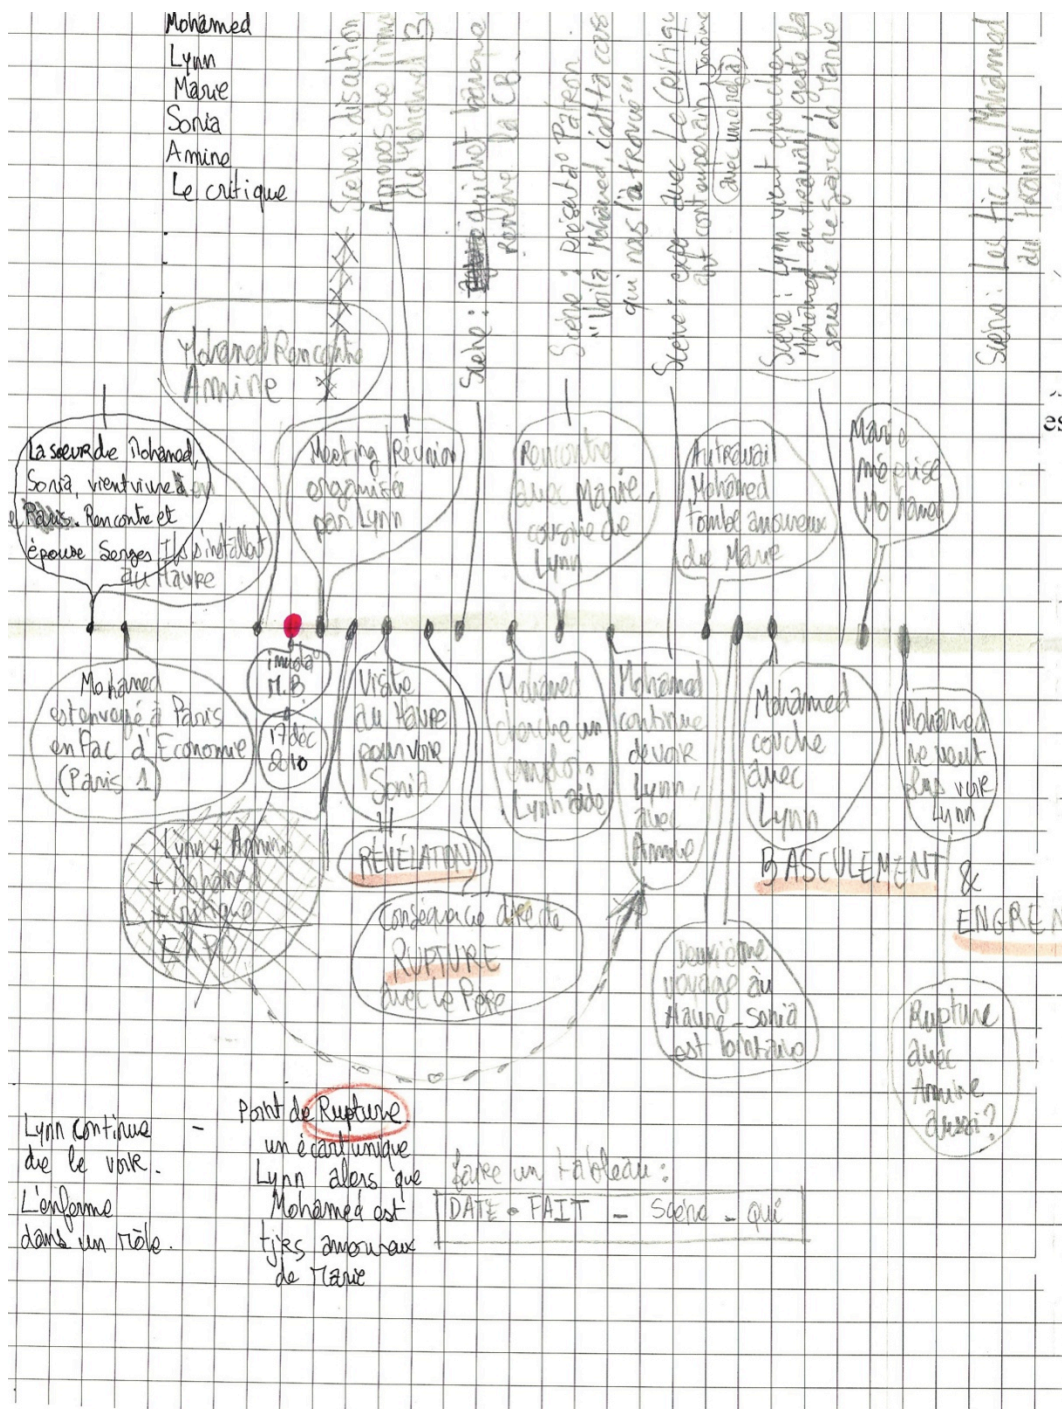 Mohamed
Lynn
Marie
Sonia
Amine
Le critique
Scène : discution
Apropos de l'immo
de Mohamed B
Scène : guichet banque
rendre la CB.
Scène : Présentat° Patron
"Voilà Mohamed, c'est ta cous
qui nous l'a trouvé"
Scène : expo avec Le Critiqu
art contemporain
Scène : Lynn vient chercher
Mohamed au travail, geste
sous le regard de Marie
Scène : Les tic de Mohamed
au travail
Mohamed Rencontre
Amine
La soeur de Mohamed,
Sonia, vient vivre
Paris. Rencontre et
épouse Serges Ils s'installent
au Havre
Meeting / Réunion
organisée
par Lynn
Rencontre
avec Marie,
cousine de
Lynn
Au travail
Mohamed
tombe amoureux
de Marie
Marie
méprise
Mohamed
es
Mohamed
est envoyé à Paris
en Fac d'Economie
(Paris 1)
immola°
M.B
17 déc
2010
Visite
au Havre
pour voir
Sonia
RÉVÉLATION
Mohamed
cherche un
emploi,
Lynn aide
Mohamed
continue
de voir
Lynn,
avec
Amine
Mohamed
couche
avec
Lynn
Mohamed
ne veut
plus voir
Lynn
BASCULEMENT &
ENGREN
Lynn + Amine
+ Mohamed
+ Critique
EXPO
Conséquence directe
RUPTURE
avec le Père
Deuxième
voyage au
Havre - Sonia
est lointaine
Rupture
avec
Amine
aussi?
Lynn continue
de le voir.
L'enferme
dans un rôle.
- Point de Rupture
un écart unique
Lynn alors que
Mohamed est
tjrs amoureux
de Marie
faire un tableau :
DATE - FAIT - Scène - qui